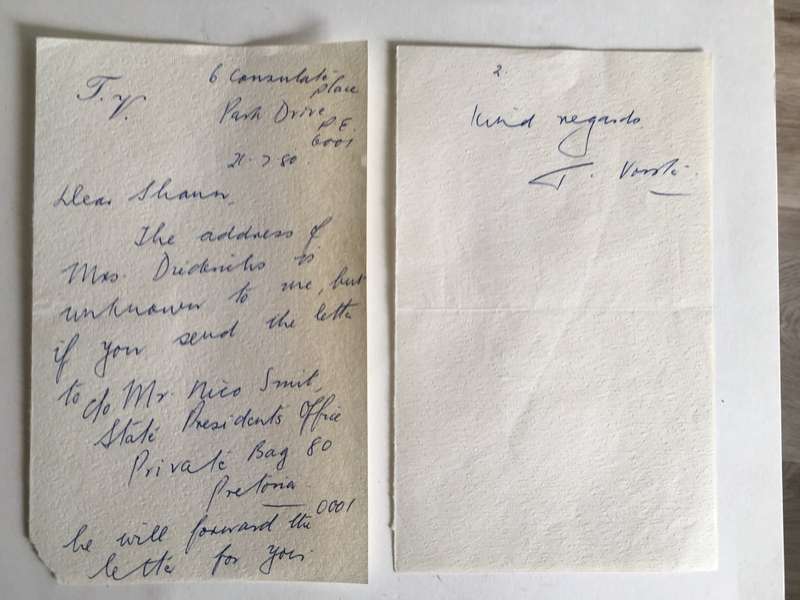 T.V.
6 Consulate
place
Park Drive
P.E.
6001
21.7.80
Dear Shaun,
The address of
Mrs. Diederichs is
unknown to me, but
if you send the letter
to c/o Mr. Nico Smit,
State Presidents Office
Private Bag 80
Pretoria
0001
he will forward the
letter for you.
2.
Kind regards
T. Vorster